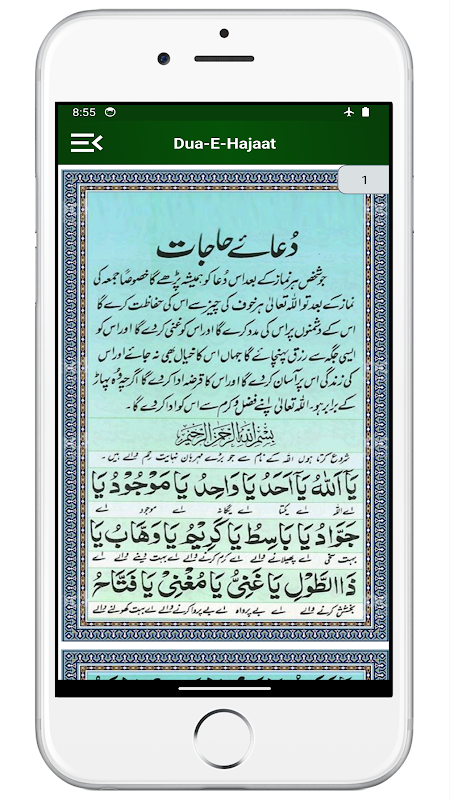 8:55
Dua-E-Hajaat
1
دُعائے حاجات
جو شخص ہر نماز کے بعد اس دُعا کو ہمیشہ پڑھے گا خصوصًا جمعہ کی
نماز کے بعد تو اللہ تعالیٰ ہر خوف کی چیز سے اس کی حفاظت کرے گا
اس کے دشمنوں پر اس کی مدد کرے گا اور اس کو غنی کر دے گا اور اس کو
ایسی جگہ سے رزق پہنچائے گا جہاں اس کا خیال بھی نہ جائے اور اس
کی زندگی اس پر آسان کر دے گا اور اس کا قرضہ ادا کر دے گا اگرچہ وُہ پہاڑ
کے برابر ہو۔ اللہ تعالیٰ اپنے فضل و کرم سے اس کو ادا کر دے گا۔
بِسْمِ اللّٰهِ الرَّحْمٰنِ الرَّحِيْمِ
شروع کرتا ہوں اللہ کے نام سے جو بڑے مہربان نہایت رحم والے ہیں۔
يَآ اَللّٰهُ يَآ اَحَدُ يَا وَاحِدُ يَا مَوْجُوْدُ يَا
اے اللہ اے یکتا اے یگانہ اے موجود اے
جَوَّادُ يَا بَاسِطُ يَا كَرِيْمُ يَا وَهَّابُ يَا
بہت سخی اے پھیلانے والے اے کرم کرنے والے اے بہت دینے والے اے
ذَا الطَّوْلِ يَا غَنِيُّ يَا مُغْنِيْ يَا فَتَّاحُ
بخشش کرنے والے اے بے پرواہ اے بے پروا کرنے والے اے بہت کھولنے والے